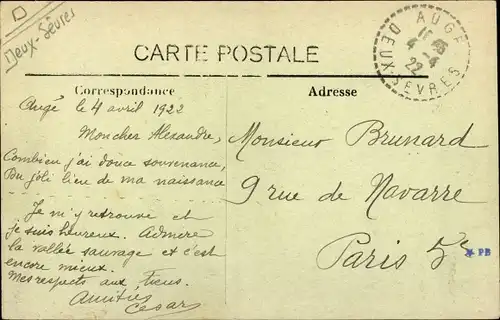 Deux-Sèvres
AUGÉ
11 45
4 - 4
22
DEUX-SEVRES
CARTE POSTALE
Correspondance
Adresse
Augé le 4 avril 1922
Mon cher Alexandre,
Combien j'ai douce souvenance,
Du joli lieu de ma naissance
Je m'y retrouve et
je suis heureux. Admire
la vallée sauvage et c'est
encore mieux.
Mes respects aux tiens.
Amitiés
Cesar
Monsieur Brunard
9 rue de Navarre
Paris 5e
PB